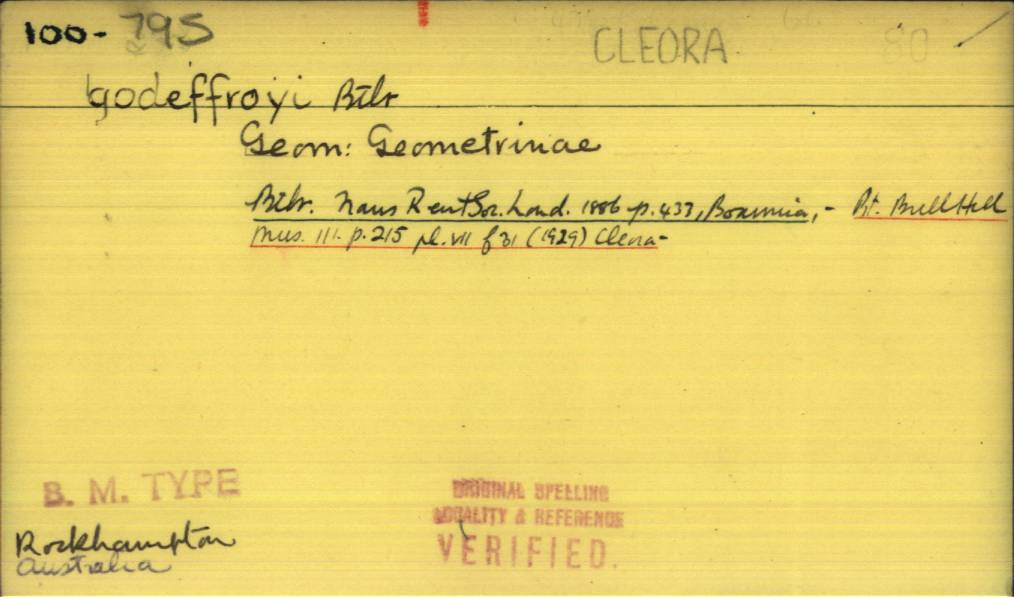 100- 795
CLEORA
80
godeffroyi Btlr
Geom: Geometrinae
Btlr. Trans R ent Soc. Lond. 1886 p. 433, Boarmia, - Pt. Bull Hill
Mus. III. p. 215 pl. VII f 31 (1929) Cleora-
B. M. TYPE
ORIGINAL SPELLING
LOCALITY & REFERENCE
VERIFIED.
Rockhampton
Australia